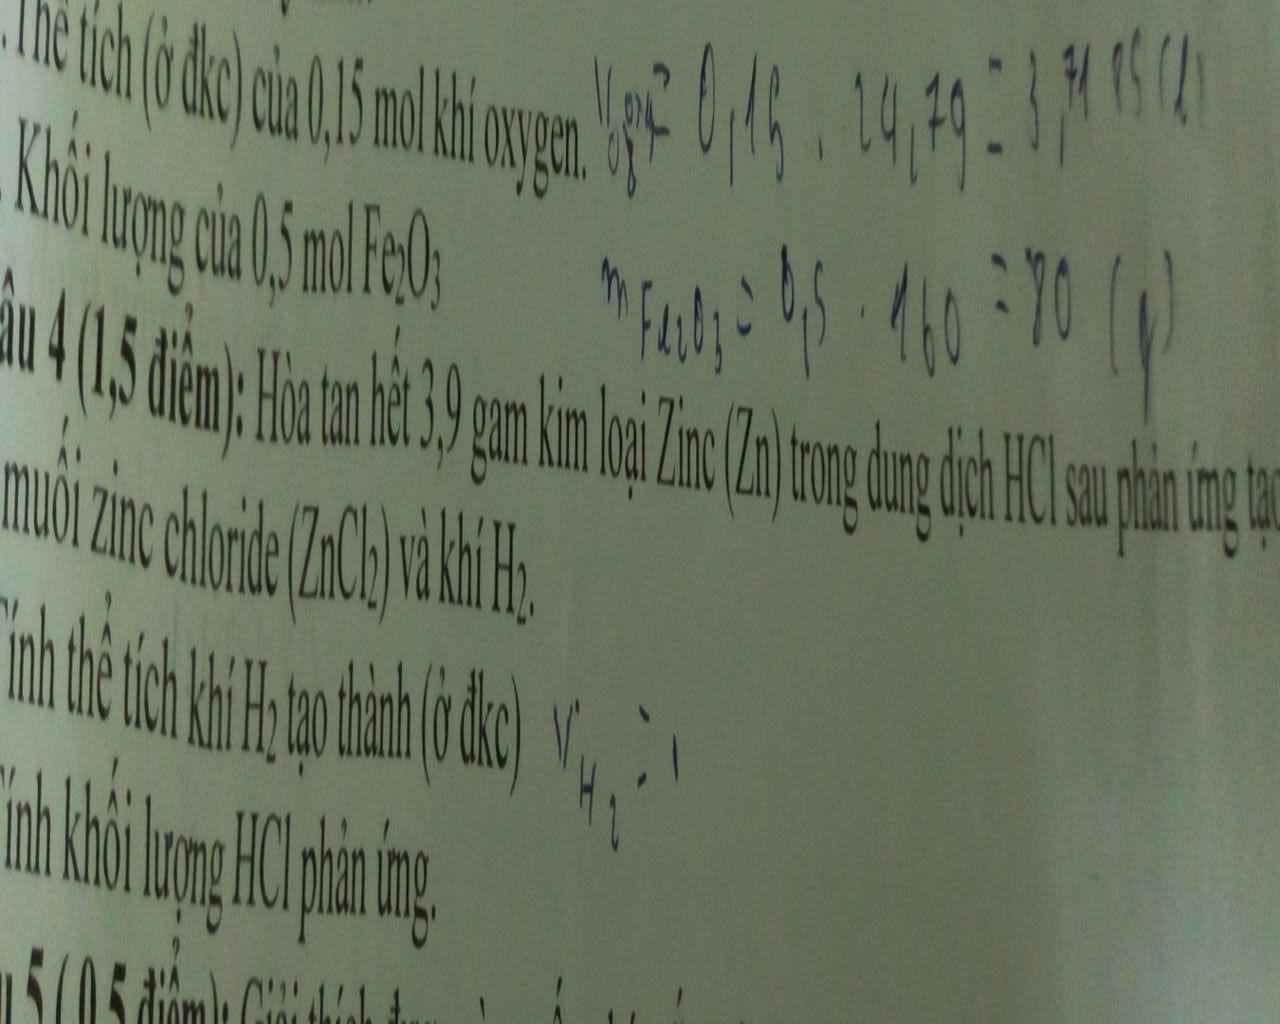 Thể tích (ở đkc) của 0,15 mol khí oxygen. = 0,15 . 24,79 = 3,7185 (l)
Khối lượng của 0,5 mol Fe₂O₃ m Fe₂O₃ = 0,5 . 160 = 80 (g)
âu 4 (1,5 điểm): Hòa tan hết 3,9 gam kim loại Zinc (Zn) trong dung dịch HCl sau phản ứng tạo
muối zinc chloride (ZnCl₂) và khí H₂.
Tính thể tích khí H₂ tạo thành (ở đkc) V H₂ =
Tính khối lượng HCl phản ứng.
u 5 ( 0,5 điểm): Giải thích được